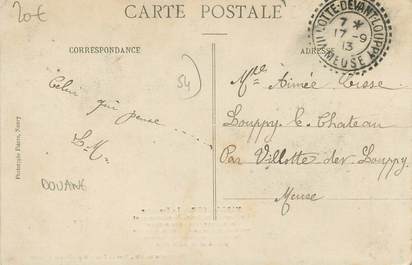 20€
CARTE POSTALE
VILLOTTE-DEVANT-LOUPPY
7 *
17 -9
13
MEUSE
CORRESPONDANCE
ADRESSE
54
Celui qui pense
L. M.
DOUANE
Mlle Aimée
Louppy le Chateau
Par Villotte dev Louppy
Meuse
Phototypie Nancy